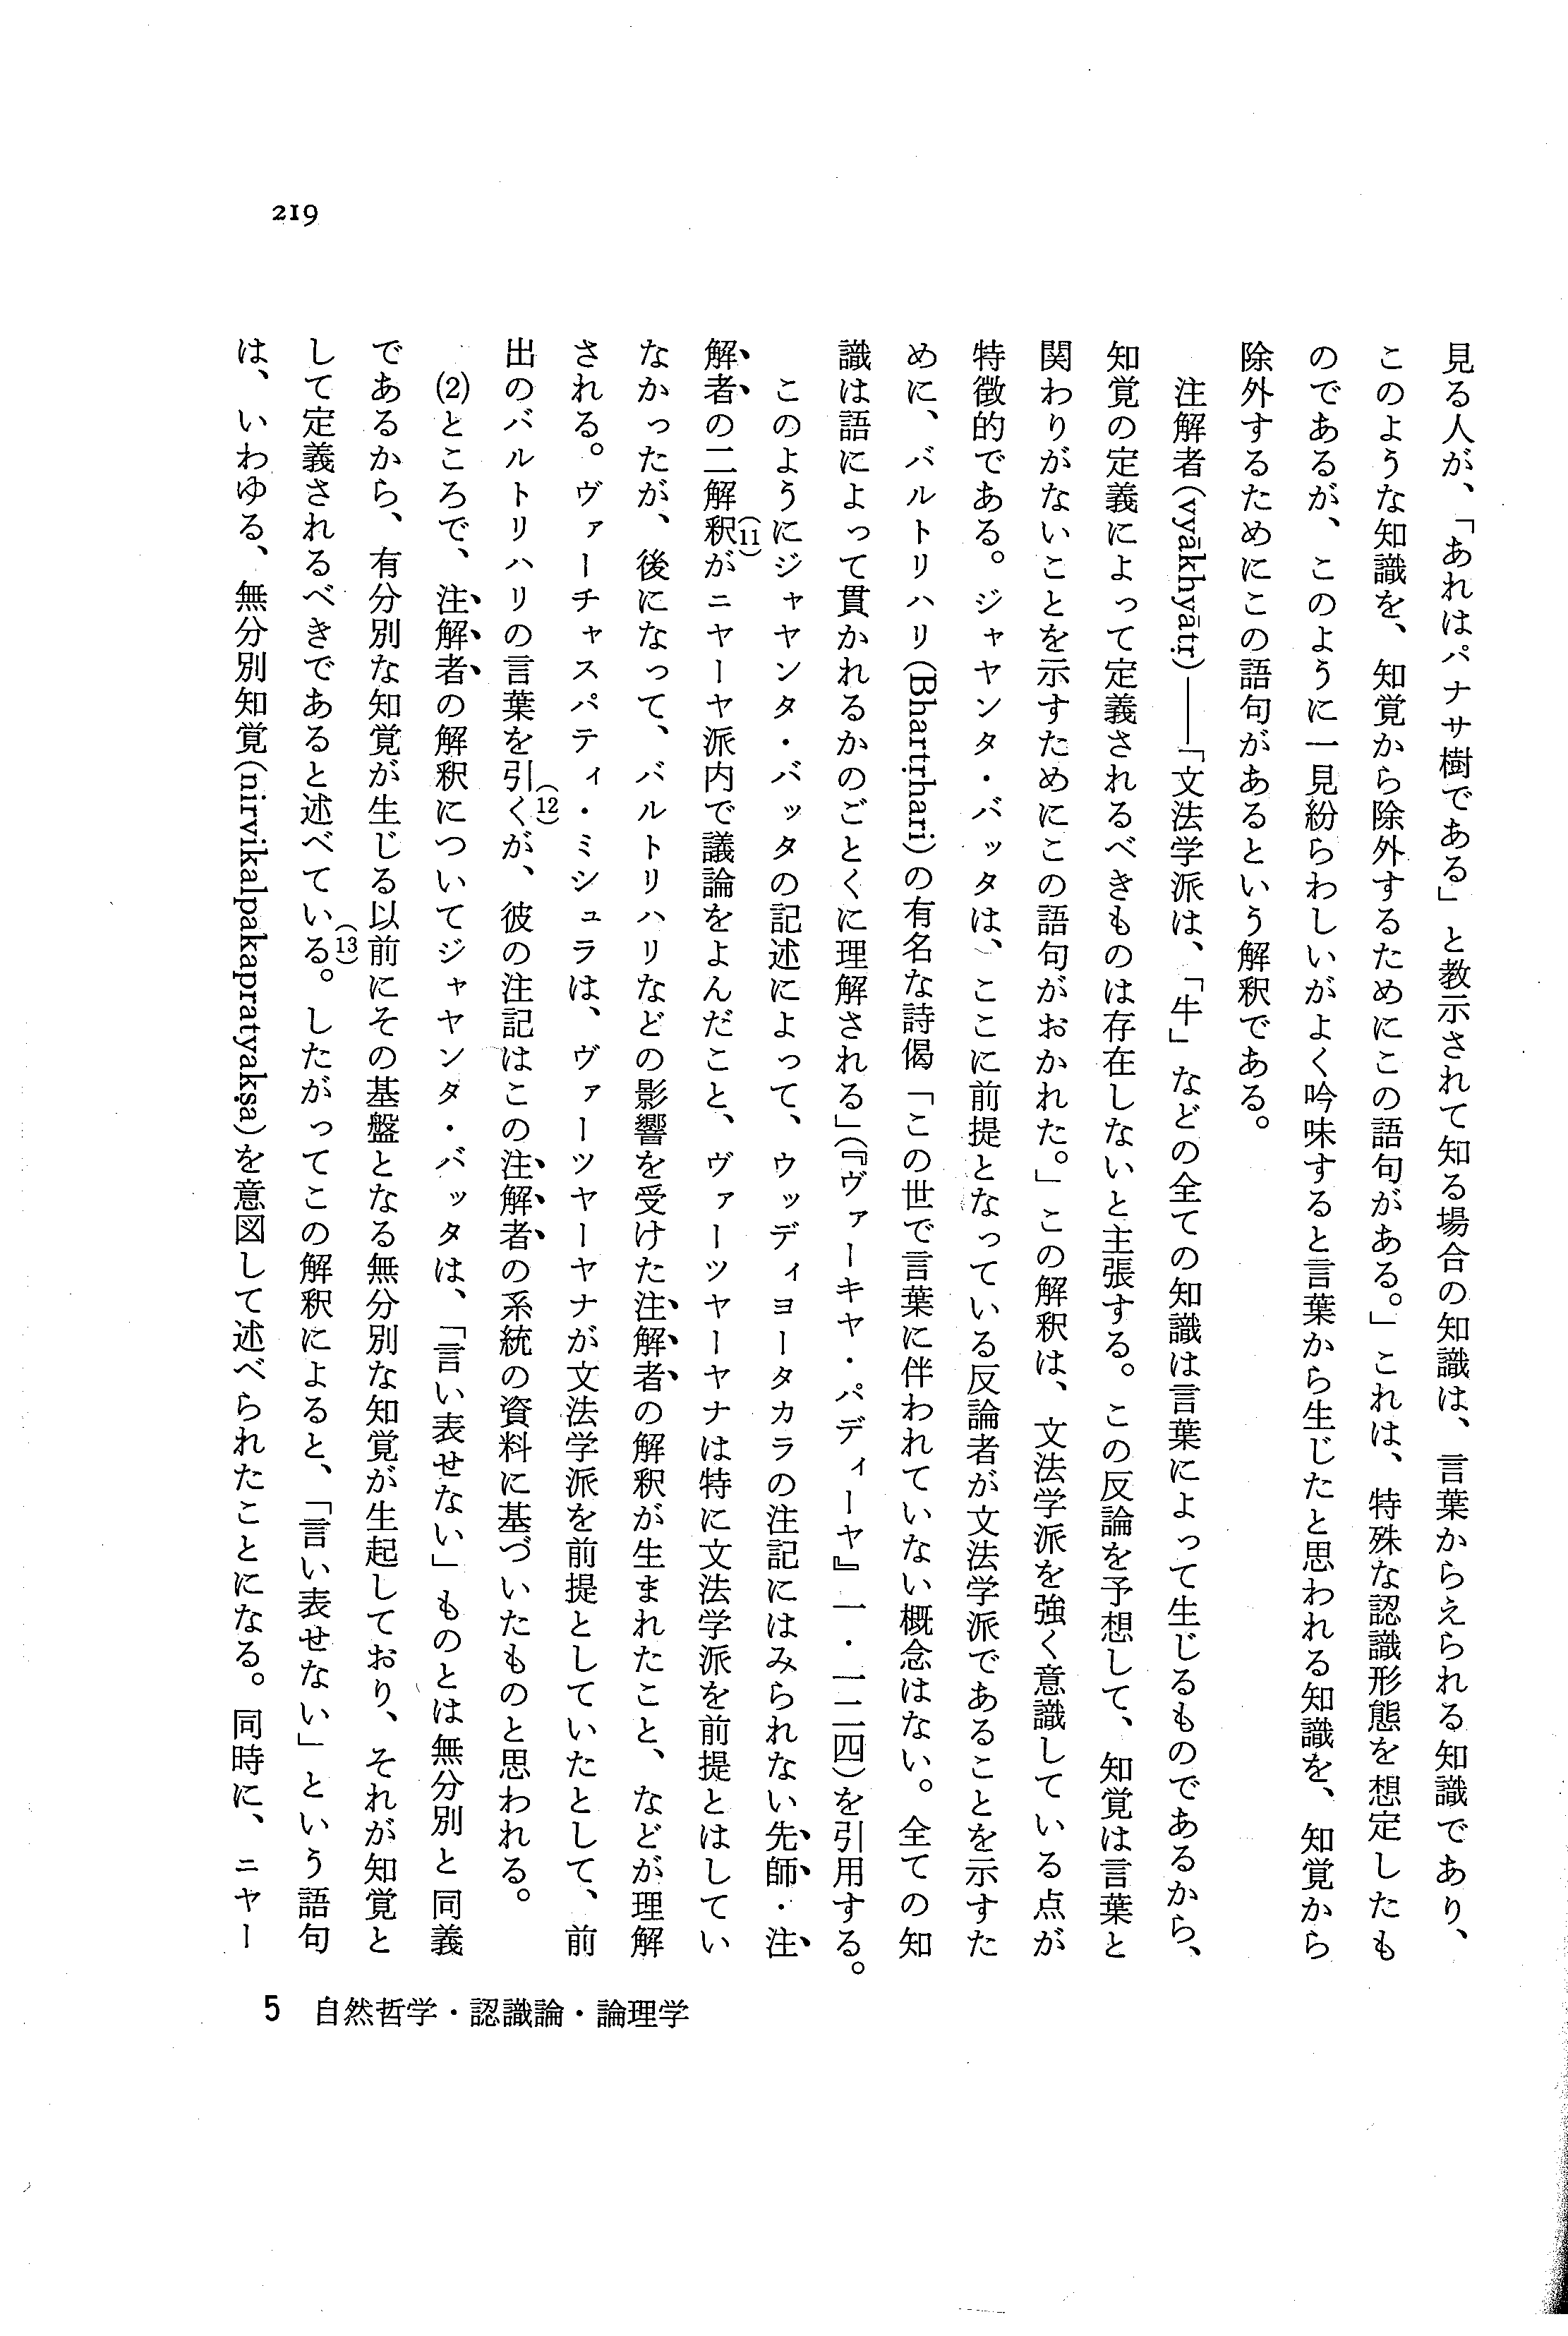 219
見る人が、「あれはパナサ樹である」と教示されて知る場合の知識は、言葉からえられる知識であり、
このような知識を、知覚から除外するためにこの語句がある。」これは、特殊な認識形態を想定したも
のであるが、このように一見紛らわしいがよく吟味すると言葉から生じたと思われる知識を、知覚から
除外するためにこの語句があるという解釈である。
注解者(vyākhyātṛ)――「文法学派は、「牛」などの全ての知識は言葉によって生じるものであるから、
知覚の定義によって定義されるべきものは存在しないと主張する。この反論を予想して、知覚は言葉と
関わりがないことを示すためにこの語句がおかれた。」この解釈は、文法学派を強く意識している点が
特徴的である。ジャヤンタ・バッタは、ここに前提となっている反論者が文法学派であることを示すた
めに、バルトリハリ(Bhartṛhari)の有名な詩偈「この世で言葉に伴われていない概念はない。全ての知
識は語によって貫かれるかのごとくに理解される」(『ヴァーキヤ・パディーヤ』一・一二四)を引用する。
このようにジャヤンタ・バッタの記述によって、ウッディヨータカラの注記にはみられない先師・注
解者の二解釈(11)がニヤーヤ派内で議論をよんだこと、ヴァーツヤーヤナは特に文法学派を前提とはしてい
なかったが、後になって、バルトリハリなどの影響を受けた注解者の解釈が生まれたこと、などが理解
される。ヴァーチャスパティ・ミシュラは、ヴァーツヤーヤナが文法学派を前提としていたとして、前
出のバルトリハリの言葉を引く(12)が、彼の注記はこの注解者の系統の資料に基づいたものと思われる。
(2)ところで、注解者の解釈についてジャヤンタ・バッタは、「言い表せない」ものとは無分別と同義
であるから、有分別な知覚が生じる以前にその基盤となる無分別な知覚が生起しており、それが知覚と
して定義されるべきであると述べている(13)。したがってこの解釈によると、「言い表せない」という語句
は、いわゆる、無分別知覚(nirvikalpakapratyakṣa)を意図して述べられたことになる。同時に、ニヤー
5 自然哲学・認識論・論理学